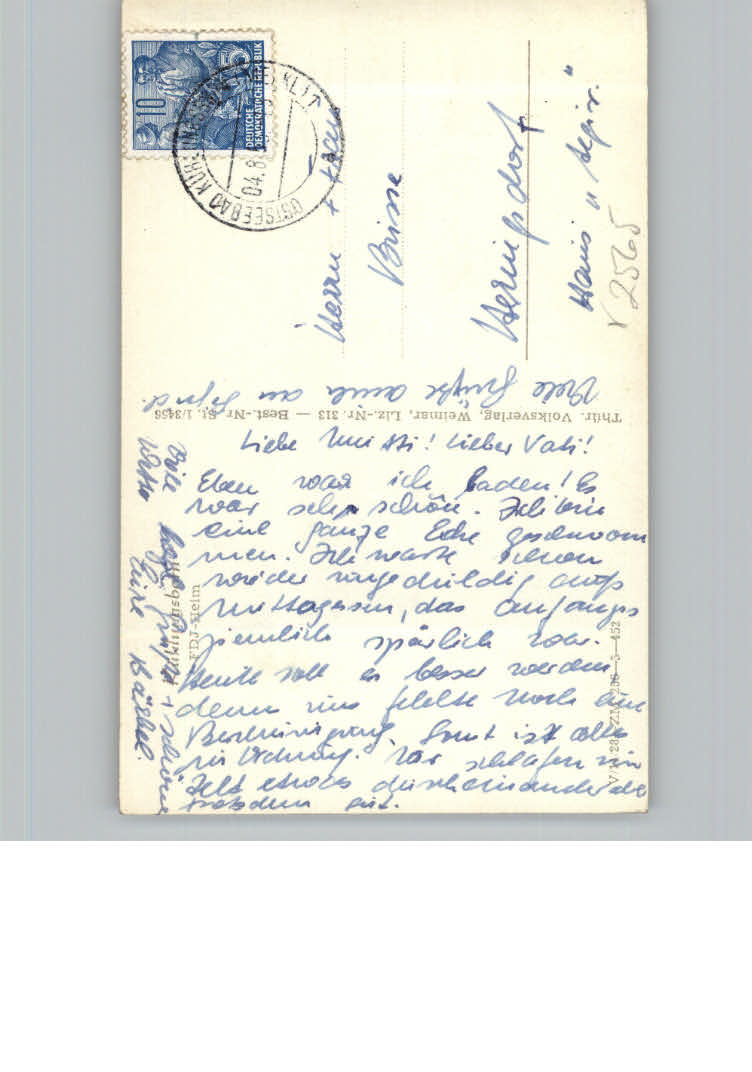 10
DEUTSCHE
DEMOKRATISCHE REPUBLIK
OSTSEEBAD KÜHLUNGSBORN
04.8
Herrn + Frau
Busse
Heringsdorf
Haus "
V 2565
Viele Grüße auch an
Thür. Volksverlag, Weimar, Liz.-Nr. 313 — Best.-Nr. St. 1/3456
Liebe Mutti! Lieber Vati!
Eben war ich baden! Es
war sehr schön. Ich bin
eine ganze Ecke geschwom
men. Ich warte schon
wieder ungeduldig aufs
Mittagessen, das anfangs
ziemlich spärlich war.
Heute soll es besser werden
denn uns fehlte noch eine
Bescheinigung. Sonst ist alles
in Ordnung. Wir schlafen im
Zelt etwas durcheinander aber
trotzdem gut.
Viele Grüße + schönes
Wetter Eure Bärbel.
Kühlungsborn
FDJ-Heim